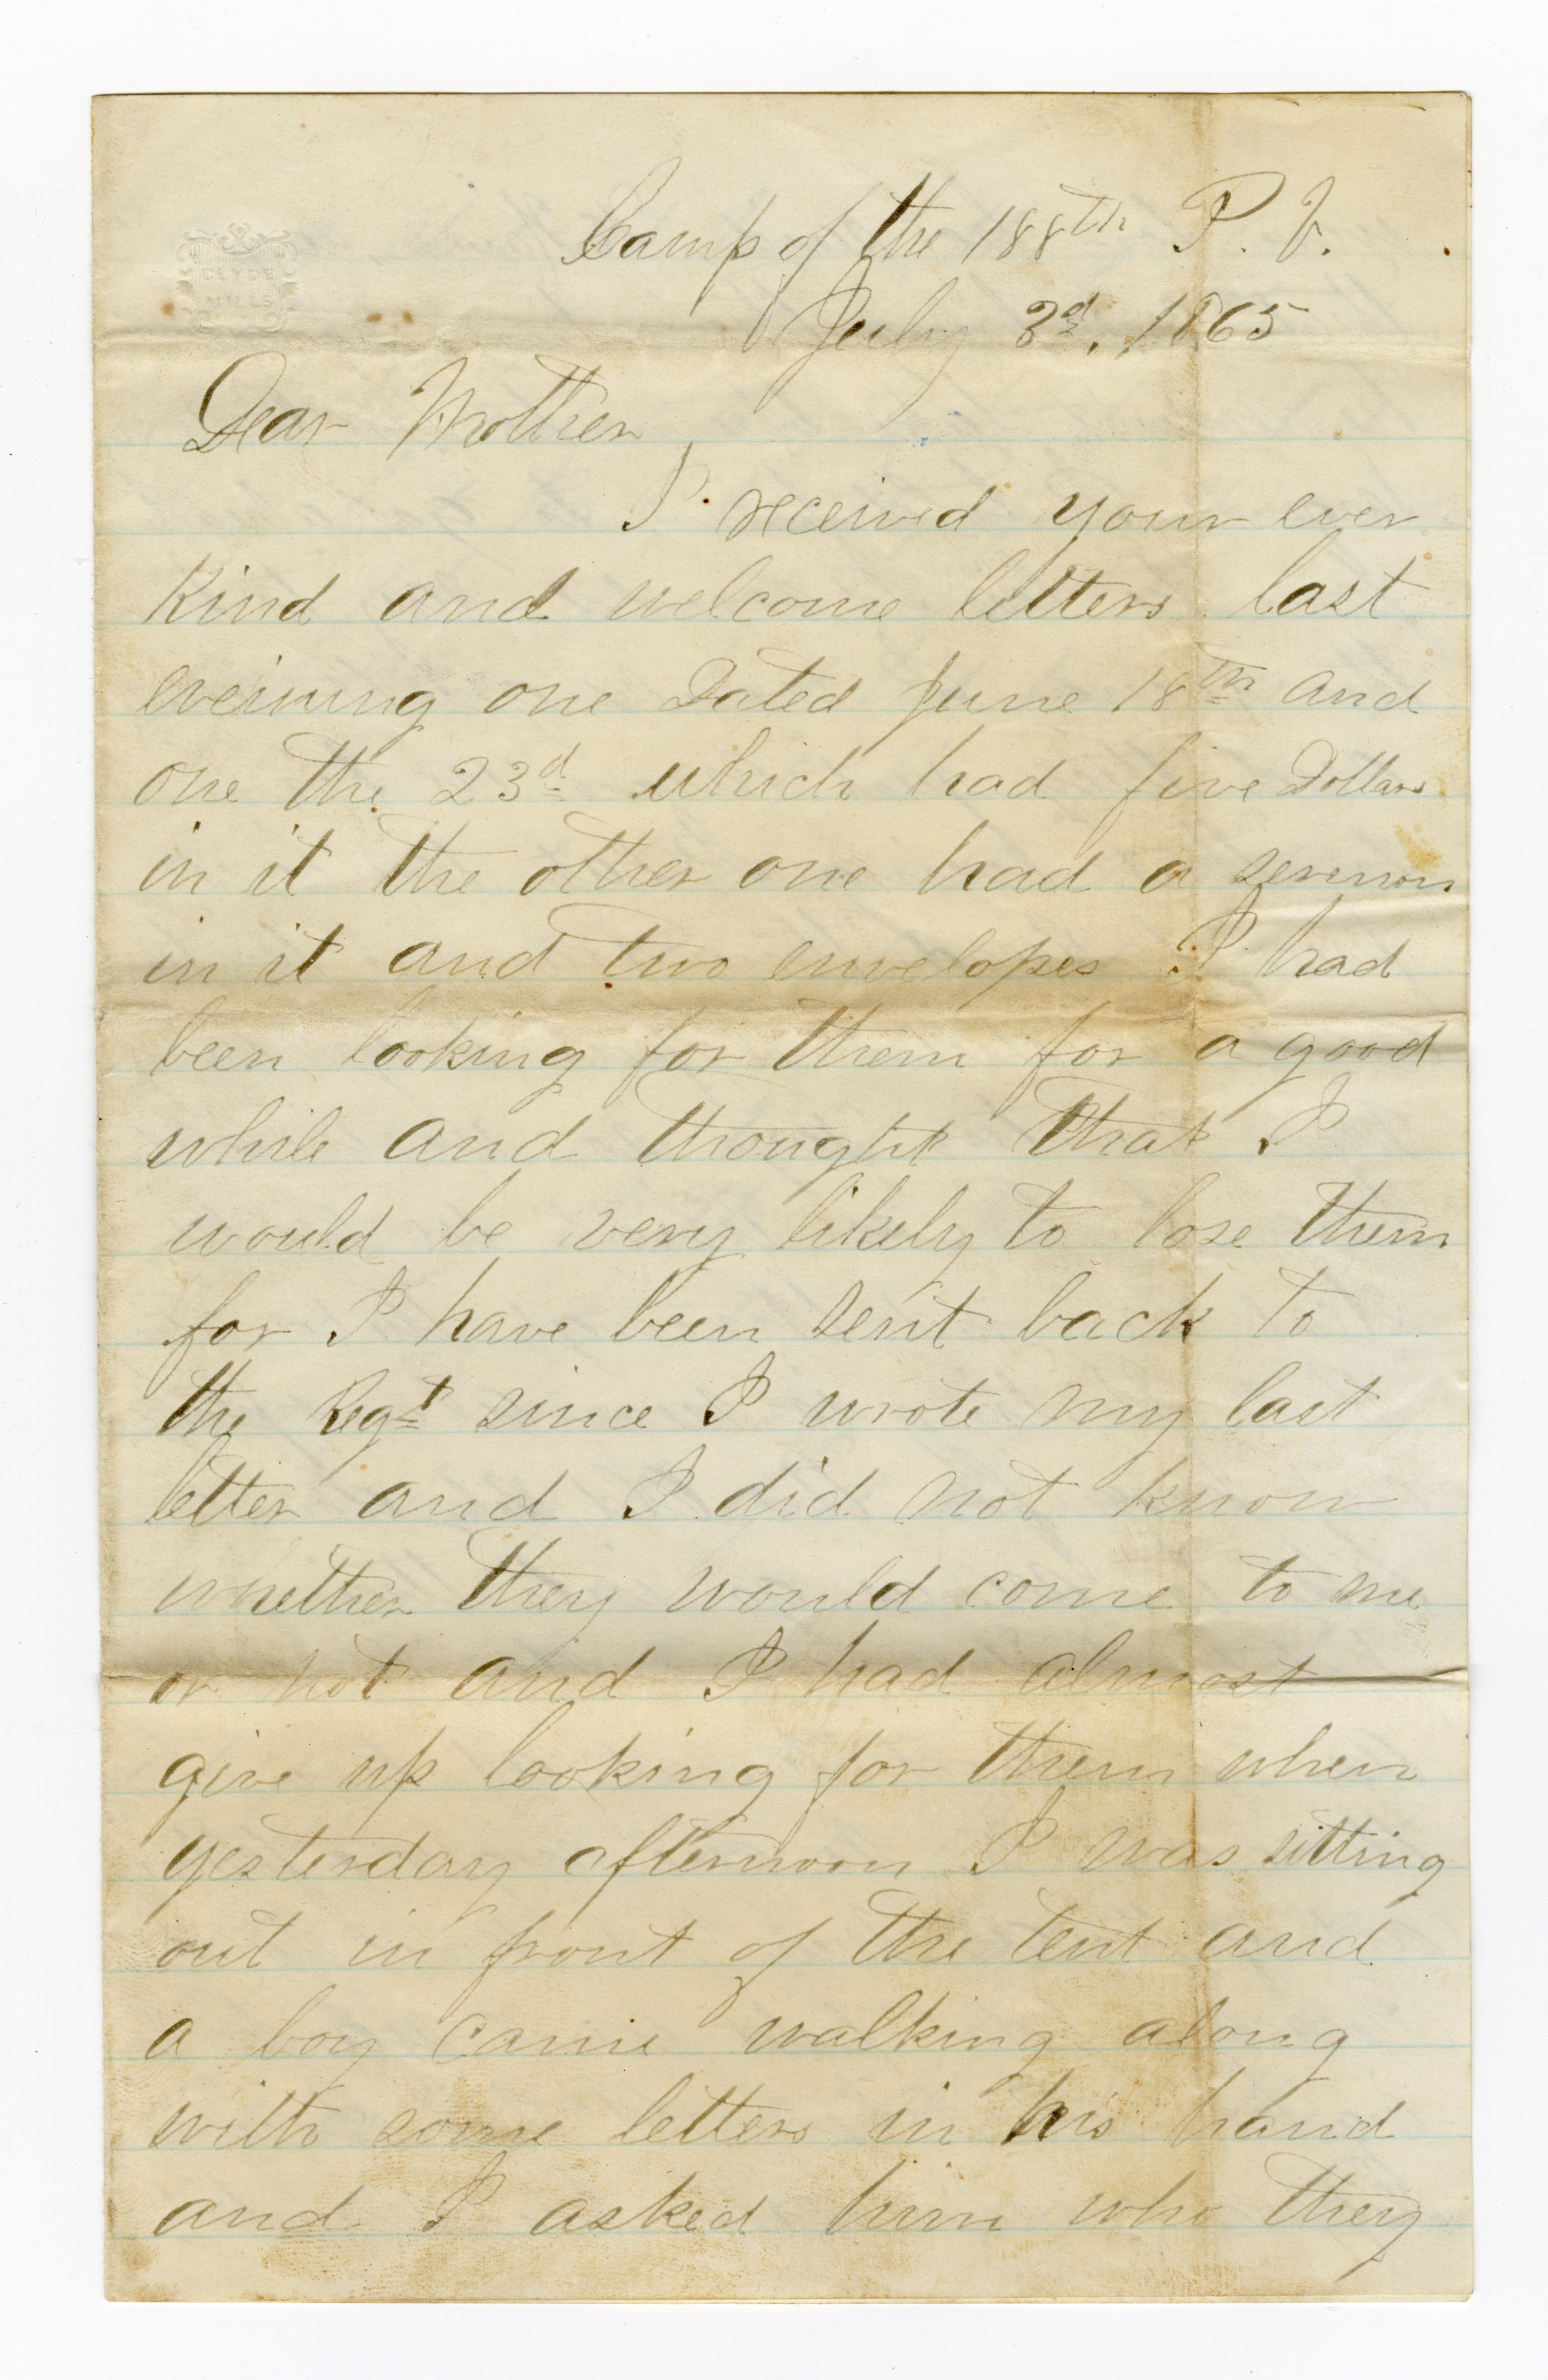 CLYDE
MILLS
Camp of the 188th P. V.
July 3d, 1865
Dear Mother
I received your ever
kind and welcome letters last
eveinung one Dated June 18th and
one the 23d which had five Dollars
in it the other one had a sermon
in it and two envelopes I had
been looking for them for a good
while and thought that I
would be very likely to lose them
for I have been sent back to
the Regt since I wrote my last
letter and I did not know
whether they would come to me
or not and I had almost
give up looking for them when
yesterday afternoon I was sitting
out in front of the tent and
a boy came walking along
with some letters in his hand
and I asked him who they